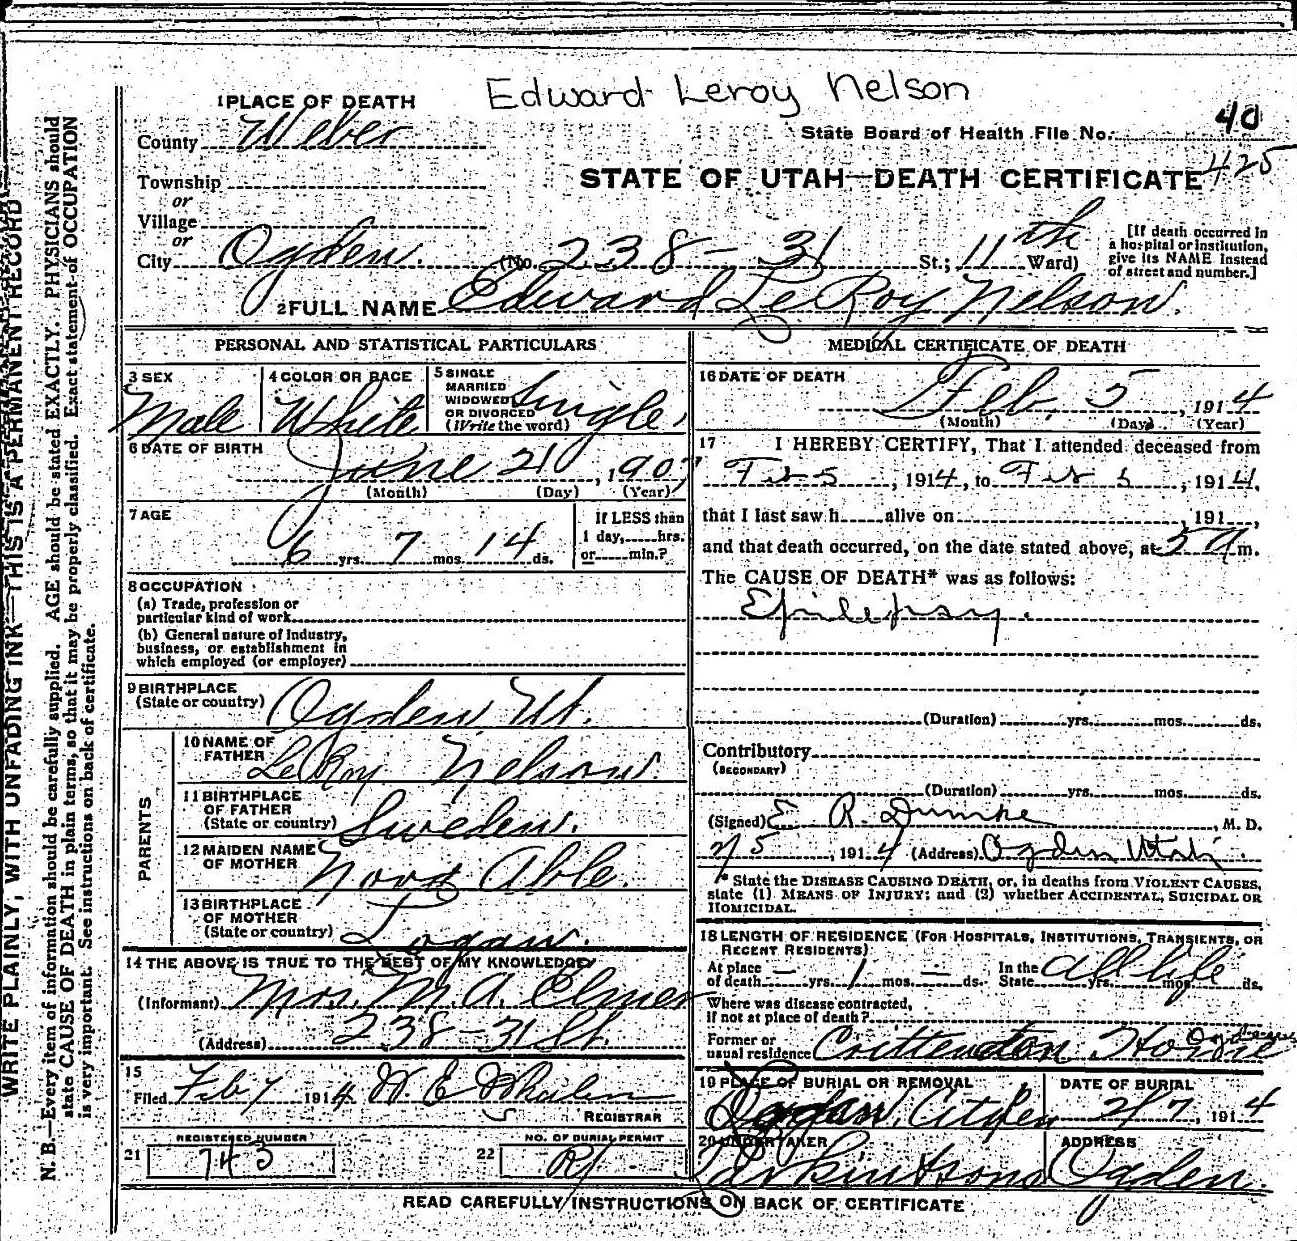 Edward Leroy Nelson
1 PLACE OF DEATH
County Weber
State Board of Health File No. 40
425
Township
or
Village
or
STATE OF UTAH—DEATH CERTIFICATE
City Ogden (No. 238-31 St.; 11th Ward)
[If death occurred in a hospital or institution, give its NAME instead of street and number.]
2 FULL NAME Edward LeRoy Nelson.
PERSONAL AND STATISTICAL PARTICULARS
3 SEX
Male
4 COLOR OR RACE
White
5 SINGLE
MARRIED
WIDOWED
OR DIVORCED
(Write the word)
Single
6 DATE OF BIRTH
June 21, 1907
(Month) (Day) (Year)
7 AGE
6 yrs. 7 mos. 14 ds.
If LESS than
1 day,.....hrs.
or.....min.?
8 OCCUPATION
(a) Trade, profession or
particular kind of work
(b) General nature of industry,
business, or establishment in
which employed (or employer)
9 BIRTHPLACE
(State or country) Ogden Ut.
PARENTS
10 NAME OF
FATHER LeRoy Nelson.
11 BIRTHPLACE
OF FATHER
(State or country) Sweden.
12 MAIDEN NAME
OF MOTHER Nora Able.
13 BIRTHPLACE
OF MOTHER
(State or country) Logan.
14 THE ABOVE IS TRUE TO THE BEST OF MY KNOWLEDGE
(Informant) Mrs. M. A. Elmer
(Address) 238-31 St.
15
Filed Feb 7 1914 W. E. Whalen
REGISTRAR
21 REGISTERED NUMBER
743
22 NO. OF BURIAL PERMIT
MEDICAL CERTIFICATE OF DEATH
16 DATE OF DEATH
Feb. 5, 1914
(Month) (Day) (Year)
17 I HEREBY CERTIFY, That I attended deceased from
Feb 5, 1914, to Feb 5, 1914,
that I last saw h.....alive on..... 191...,
and that death occurred, on the date stated above, at 5 A m.
The CAUSE OF DEATH* was as follows:
Epilepsy.
(Duration) yrs. mos. ds.
Contributory
(SECONDARY)
(Duration) yrs. mos. ds.
(Signed) E. R. Dumke, M. D.
2/5, 1914 (Address) Ogden Utah.
* State the DISEASE CAUSING DEATH, or, in deaths from VIOLENT CAUSES,
state (1) MEANS OF INJURY; and (2) whether ACCIDENTAL, SUICIDAL OR
HOMICIDAL.
18 LENGTH OF RESIDENCE (FOR HOSPITALS, INSTITUTIONS, TRANSIENTS, OR
RECENT RESIDENTS)
At place
of death — yrs. 1 mos. — ds.
In the
State all life yrs. mos. ds.
Where was disease contracted,
if not at place of death?
Former or
usual residence Crittendton Home
19 PLACE OF BURIAL OR REMOVAL
DATE OF BURIAL
2/7, 1914
20 UNDERTAKER
ADDRESS
Ogden.
READ CAREFULLY INSTRUCTIONS ON BACK OF CERTIFICATE
WRITE PLAINLY, WITH UNFADING INK—THIS IS A PERMANENT RECORD
N. B.—Every item of information should be carefully supplied. AGE should be stated EXACTLY. PHYSICIANS should
state CAUSE OF DEATH in plain terms, so that it may be properly classified. Exact statement of OCCUPATION
is very important. See instructions on back of certificate.